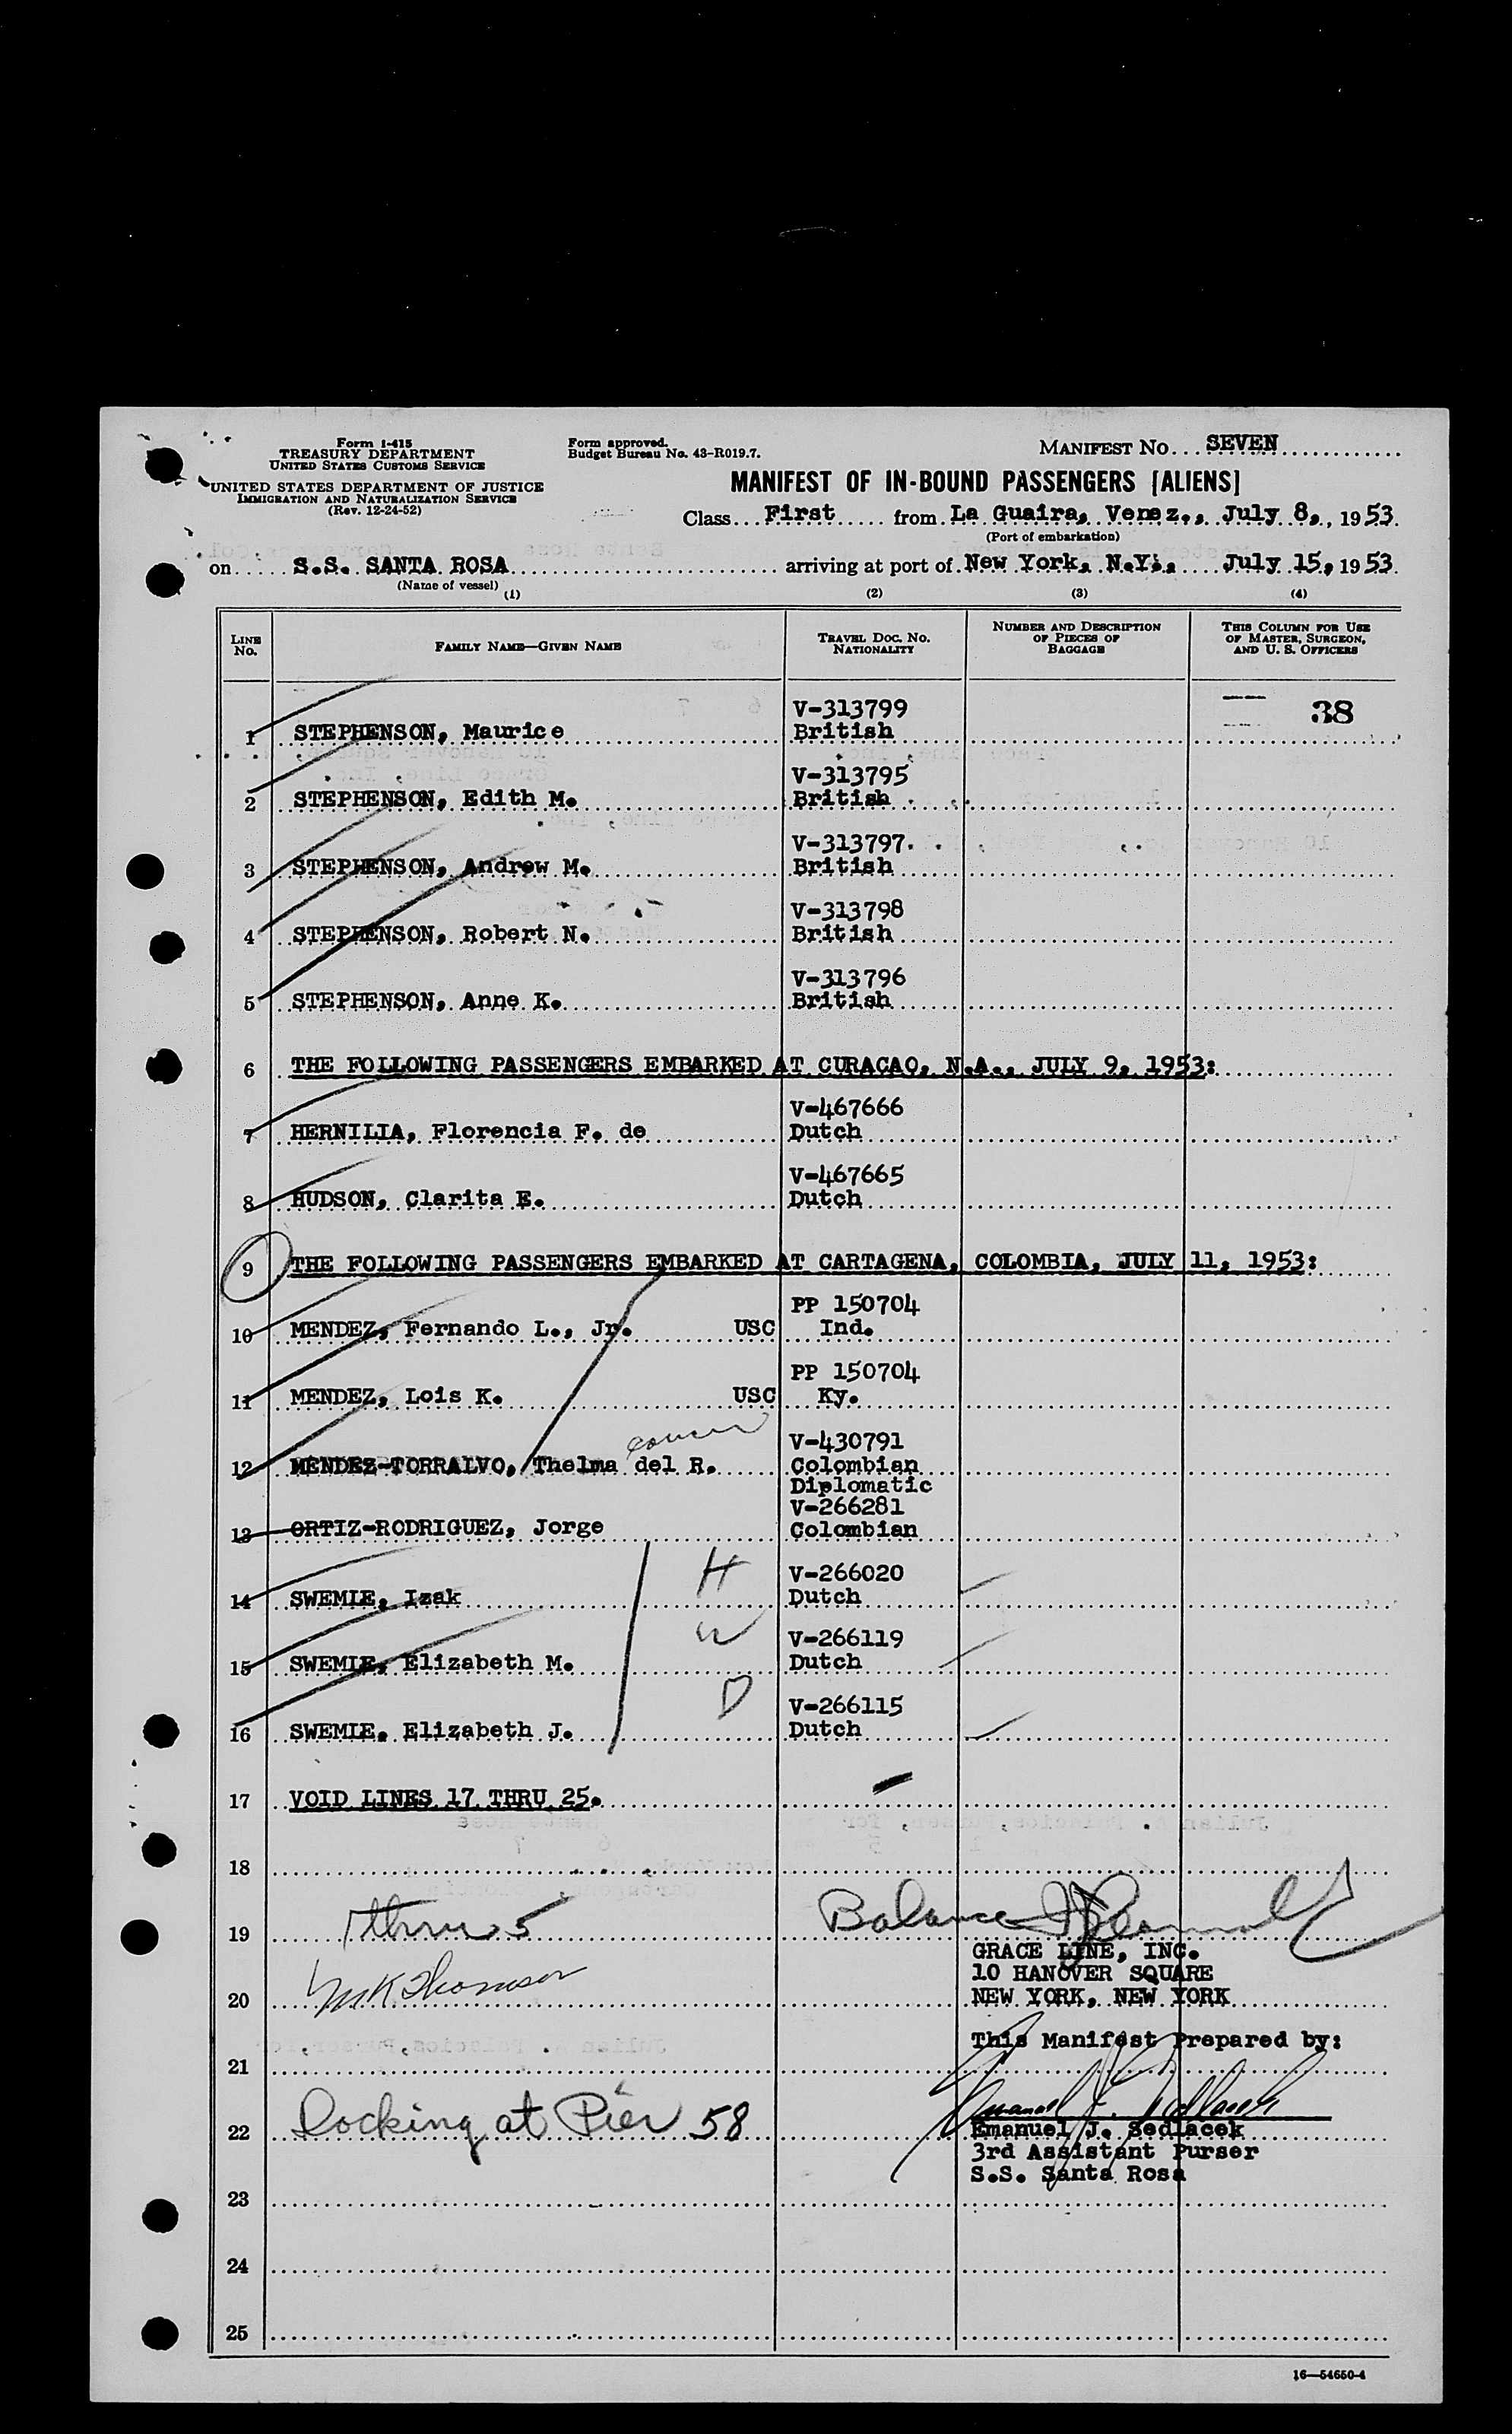 Form I-415
TREASURY DEPARTMENT
UNITED STATES CUSTOMS SERVICE
UNITED STATES DEPARTMENT OF JUSTICE
IMMIGRATION AND NATURALIZATION SERVICE
(Rev. 12-24-52)
Form approved.
Budget Bureau No. 43-R019.7.
MANIFEST NO. SEVEN
MANIFEST OF IN-BOUND PASSENGERS [ALIENS]
Class First from La Guaira, Venez., July 8, 1953.
(Port of embarkation)
on S.S. SANTA ROSA arriving at port of New York, N.Y., July 15, 1953.
(Name of vessel)
(1) (2) (3) (4)
LINE NO. FAMILY NAME—GIVEN NAME TRAVEL DOC. NO. NATIONALITY NUMBER AND DESCRIPTION OF PIECES OF BAGGAGE THIS COLUMN FOR USE OF MASTER, SURGEON, AND U. S. OFFICERS
38
V-313799
1 STEPHENSON, Maurice British
V-313795
2 STEPHENSON, Edith M. British
V-313797
3 STEPHENSON, Andrew M. British
V-313798
4 STEPHENSON, Robert N. British
V-313796
5 STEPHENSON, Anne K. British
6 THE FOLLOWING PASSENGERS EMBARKED AT CURACAO, N.A., JULY 9, 1953:
V-467666
7 HERNILIA, Florencia F. de Dutch
V-467665
8 HUDSON, Clarita E. Dutch
9 THE FOLLOWING PASSENGERS EMBARKED AT CARTAGENA, COLOMBIA, JULY 11, 1953:
PP 150704
10 MENDEZ, Fernando L., Jr. USC Ind.
PP 150704
11 MENDEZ, Lois K. USC Ky.
V-430791
12 MENDEZ-TORRALVO, Thelma del R. Colombian
Diplomatic
V-266281
13 ORTIZ-RODRIGUEZ, Jorge Colombian
H V-266020
14 SWEMIE, Izak Dutch
W V-266119
15 SWEMIE, Elizabeth M. Dutch
D V-266115
16 SWEMIE, Elizabeth J. Dutch
17 VOID LINES 17 THRU 25.
18
19 1 thru 5 Balance
GRACE LINE, INC.
10 HANOVER SQUARE
20 MK Thomson NEW YORK, NEW YORK
This Manifest Prepared by:
21
Emanuel J. Sedlacek
22 Docking at Pier 58 Emanuel J. Sedlacek
3rd Assistant Purser
S.S. Santa Rosa
23
24
25
16—54650-4